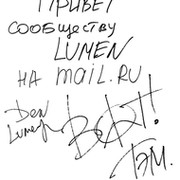 ПРИВЕТ
СООБЩЕСТВУ
LUMEN
НА mail.RU
Den
Lumen
ВСЁ!
Тэм.